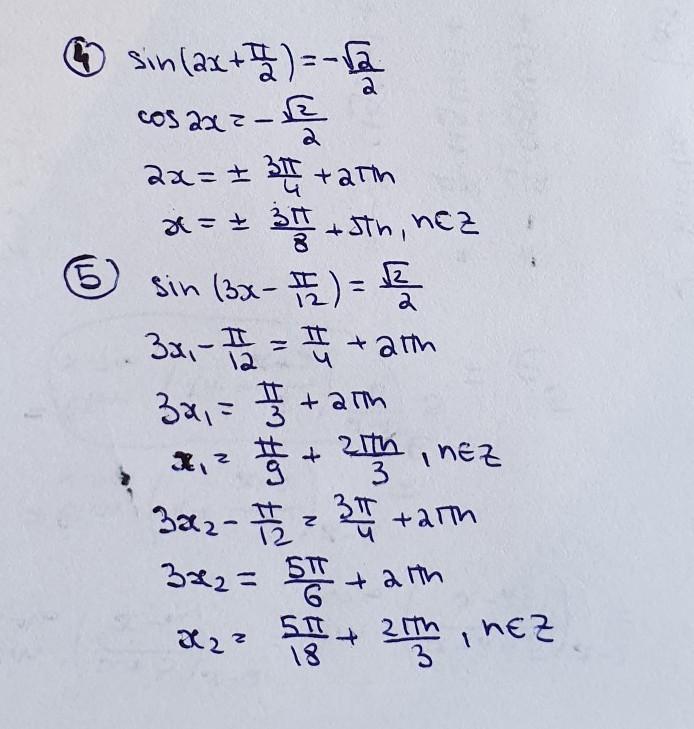 ④ sin(2x+π/2)=-√2/2
cos2x=-√2/2
2x=± 3π/4+2πn
x=± 3π/8+πn, n∈Z
⑤ sin(3x-π/12)=√2/2
3x₁-π/12=π/4+2πn
3x₁=π/3+2πn
x₁=π/9+2πn/3, n∈Z
3x₂-π/12=3π/4+2πn
3x₂=5π/6+2πn
x₂=5π/18+2πn/3, n∈Z